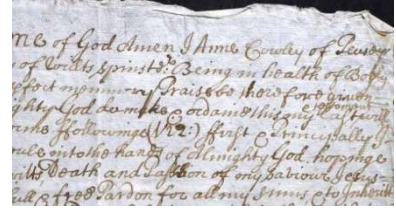 me of God Amen I Anne Cowley of Pewsey
of Wilts Spinster Being in health of Body
pfect memmory Praise be therefore given
ighty God do make & ordaine this my Last will
orme ffollowinge (Viz:) ffirst & Principally I
oule into the hands of Almighty God, hopinge
itts Death and Passion of my Saviour Jesus
full & free Pardon for all my Sinns & to Inheritt